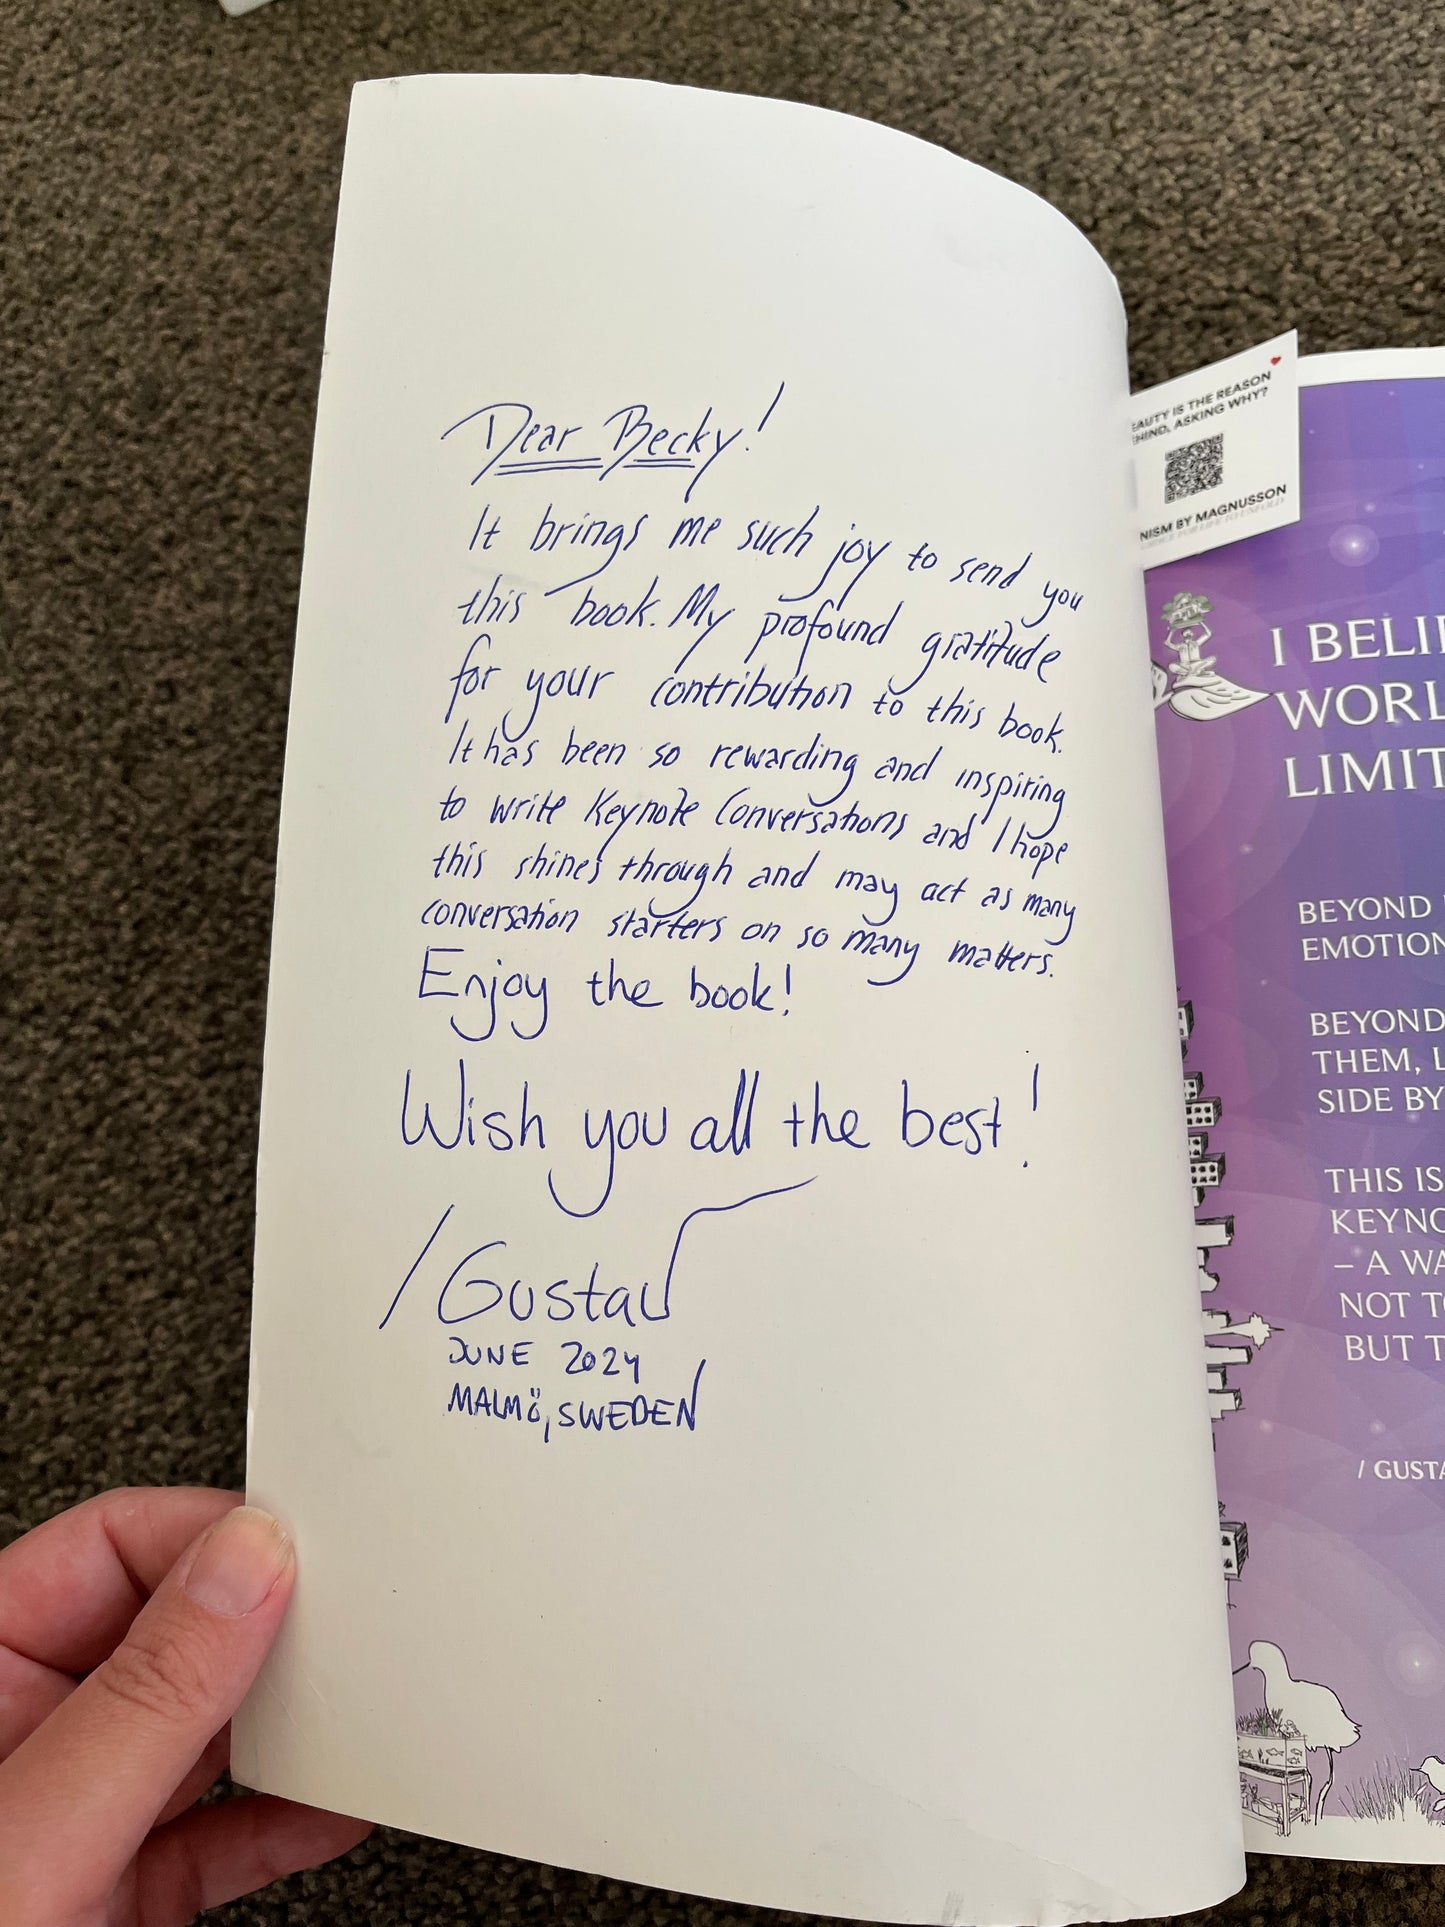 Dear Becky!
It brings me such joy to send you
this book. My profound gratitude
for your contribution to this book.
It has been so rewarding and inspiring
to write Keynote Conversations and I hope
this shines through and may act as many
conversation starters on so many matters.
Enjoy the book!
Wish you all the best!
/Gustav
JUNE 2024
MALMÖ, SWEDEN
EAUTY IS THE REASON
EHIND, ASKING WHY?
NISM BY MAGNUSSON
I BELIE
WORL
LIMIT
BEYOND
EMOTION
BEYOND
THEM, L
SIDE BY
THIS IS
KEYNO
– A WA
NOT TO
BUT T
/ GUSTA